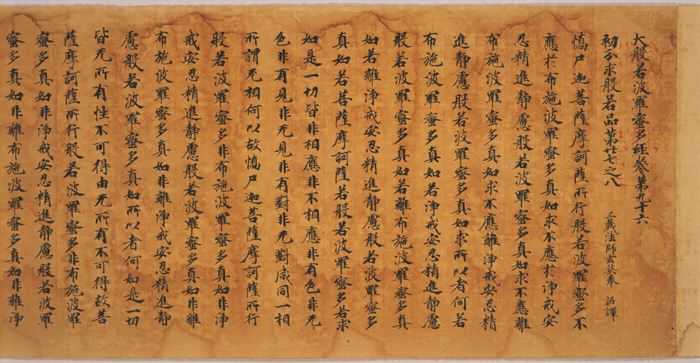 大般若波羅蜜多經卷第九十六
初分求般若品第廿七之八
三藏法師玄奘奉 詔譯
憍尸迦菩薩摩訶薩所行般若波羅蜜多不
應於布施波羅蜜多真如求不應於淨戒安
忍精進靜慮般若波羅蜜多真如求不應離
布施波羅蜜多真如求不應離淨戒安忍精
進靜慮般若波羅蜜多真如求所以者何若
布施波羅蜜多真如若淨戒安忍精進靜慮
般若波羅蜜多真如若離布施波羅蜜多真
如若離淨戒安忍精進靜慮般若波羅蜜多
真如若菩薩摩訶薩若般若波羅蜜多若求
如是一切皆非相應非不相應非有色非无
色非有見非无見非有對非无對咸同一相
所謂无相何以故憍尸迦菩薩摩訶薩所行
般若波羅蜜多非布施波羅蜜多真如非淨
戒安忍精進靜慮般若波羅蜜多真如非離
布施波羅蜜多真如非離淨戒安忍精進靜
慮般若波羅蜜多真如所以者何如是一切
皆无所有性不可得由无所有不可得故菩
薩摩訶薩所行般若波羅蜜多非布施波羅
蜜多真如非淨戒安忍精進靜慮般若波羅
蜜多真如非離布施波羅蜜多真如非離淨